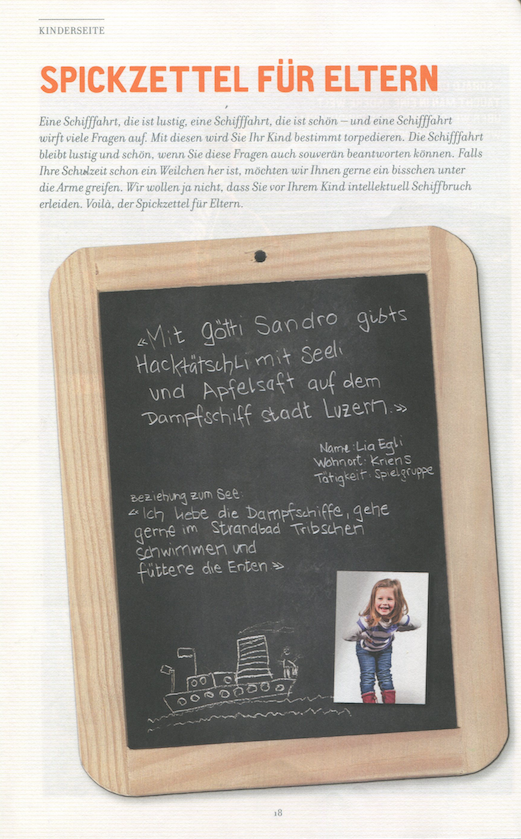 KINDERSEITE
SPICKZETTEL FÜR ELTERN
Eine Schifffahrt, die ist lustig, eine Schifffahrt, die ist schön – und eine Schifffahrt
wirft viele Fragen auf. Mit diesen wird Sie Ihr Kind bestimmt torpedieren. Die Schifffahrt
bleibt lustig und schön, wenn Sie diese Fragen auch souverän beantworten können. Falls
Ihre Schulzeit schon ein Weilchen her ist, möchten wir Ihnen gerne ein bisschen unter
die Arme greifen. Wir wollen ja nicht, dass Sie vor Ihrem Kind intellektuell Schiffbruch
erleiden. Voilà, der Spickzettel für Eltern.
«Mit Götti Sandro gibts
Hacktätschli mit Seeli
und Apfelsaft auf dem
Dampfschiff Stadt Luzern.»
Name: Lia Egli
Wohnort: Kriens
Tätigkeit: Spielgruppe
Beziehung zum See:
«Ich liebe die Dampfschiffe, gehe
gerne im Strandbad Tribschen
schwimmen und
füttere die Enten»
18